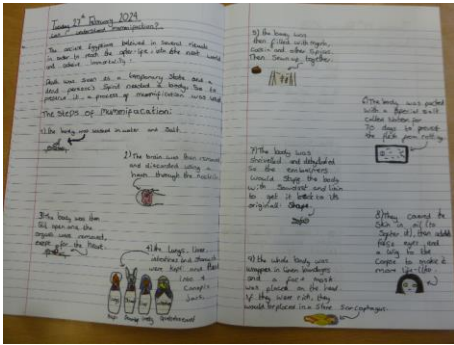 Tuesday 27th February 2024
Can I understand mummification?
The ancient Egyptians believed in several rituals
in order to reach the after-life: into the next world
and achieve immortality.
Death was seen as a temporary state and a
dead person's spirit needed a body. So to
preserve it, a process of mummification was used
The Steps of Mummification:
1) The body was washed in water and salt.
2) The brain was then removed
and discarded using a
hook through the nostrils.
3) The body was then
slit open and the
organs was removed,
except for the heart.
4) The lungs, liver,
intestines and stomach
were kept and
into a
Canopic
Jars.
5) The body was
then filled with myrrh,
and other spices.
Then sewing together.
6) The body was packed
with a special salt
called Natron for
70 days to prevent
the flesh from rotting.
7) The body was
shrivelled and dehydrated
so the embalmers
would stuff the body
with sawdust and linen
to get it back to its
original shape.
8) They covered the
skin in oil (to
soften it), then added
false eyes and
a wig to the
corpse to make it
more life-like.
9) The whole body was
wrapped in linen bandages
and a face mask
was placed on the head.
If they were rich, they
would be placed in a stone sarcophagus.